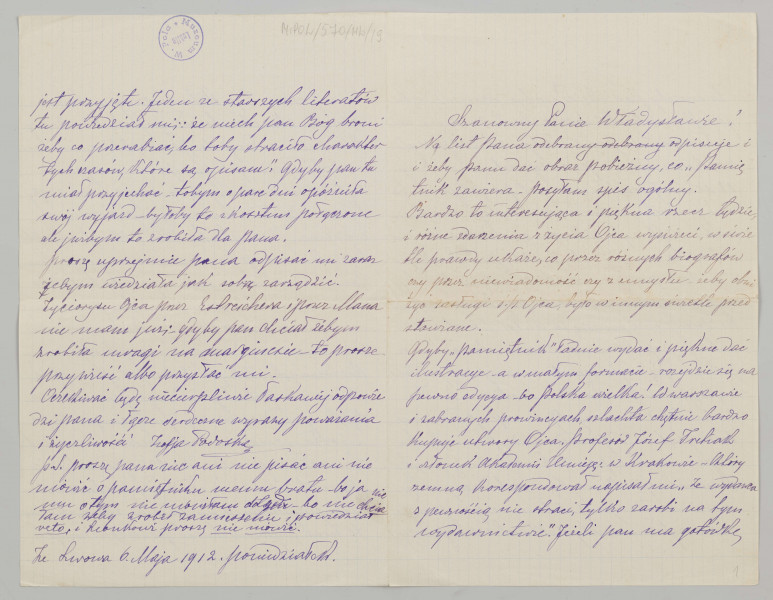 Szanowny Panie Władysławie!
Na list Pana odebrany odebrany odpisuję i
i żeby Panu dać obraz pobieżny, co „Pamię
tnik zawiera – posyłam spis ogólny.
Bardzo to interesująca i piękna rzecz będzie,
i różne zdarzenia z życia Ojca wyświeci, w świe
tle prawdy ukaże, co przez różnych biografów
czy przez niewiadomość czy z umysłu, żeby obni
żyć zasługi ś/p Ojca, było w innym świetle przed
stawiane.
Gdyby „Pamiętnik" ładnie wydać i piękne dać
ilustracye – a w małym formacie – rozejdzie się na
pewno edycya – bo Polska wielka! W Warszawie
i zabranych prowincyach, szlachta chętnie bardzo
kupuje utwory Ojca. Profesor Józef Tretiak
i członek Akademii Umieję: w Krakowie – który
zemną korespondował napisał mi „że wydawca
z pewnością nie straci, tylko zarobi na tym
wydawnictwie". Jeżeli pan ma gotówkę,
jest przyjęte. Jeden ze starszych literatów
tu powiedział mi: że niech pan Bóg broni
żeby co przerabiać, bo toby straciło charakter
tych czasów, które są opisane". Gdyby pan tu
miał przyjechać – tobym o parę dni opóźniła
swój wyjazd – byłoby to z kosztem połączone
ale jużbym to zrobiła dla pana.
Proszę uprzejmie pana odpisać mi zaraz
żebym wiedziała jak sobą zarządzić.
Życiorysu Ojca przez Estreichera i przez Mana
nie mam już – gdyby pan chciał żebym
zrobiła uwagi na marginesie – to proszę
przywieść albo przysłać mi.
Oczekiwać będę niecierpliwie łaskawej odpowie
dzi pana i łączę serdeczne wyrazy poważania
i życzliwość Zofja
P.S. proszę pana nic ani nie pisać ani nie
mówić o pamiętniku memu bratu – bo ja
mu o tym nie mówiłam – bo nie chcia
łam żeby zrobił zamieszanie i powiedział
veto, i Leonkowi proszę nie mówić.
Ze Lwowa 6. Maja 1912. poniedziałek.
MIPOL/570/VIII/19
1